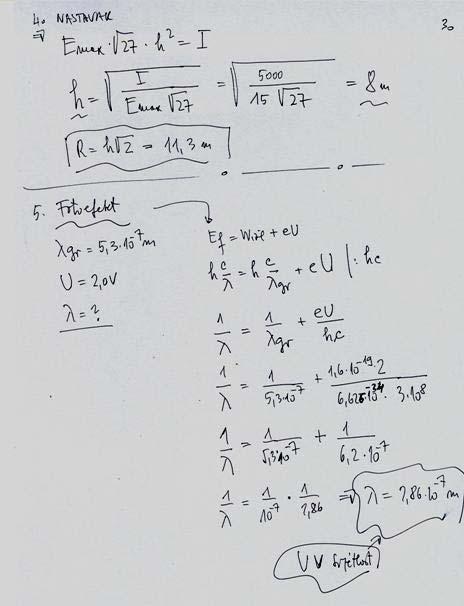 4. NASTAVAK
3.
⇒ Emax·√27·h² = I
h = √(I / Emax√27) = √(5000 / 15√27) = 8m
R = h√2 = 11,3 m
5. Fotoefekt
λgr = 5,3·10⁻⁷ m
U = 2,0V
λ = ?
Ef = Wizl + eU
h c/λ = h c/λgr + eU |: hc
1/λ = 1/λgr + eU/hc
1/λ = 1/5,3·10⁻⁷ + 1,6·10⁻¹⁹·2 / 6,626·10⁻³⁴·3·10⁸
1/λ = 1/5,3·10⁻⁷ + 1/6,2·10⁻⁷
1/λ = 1/10⁻⁷ · 1/2,86 ⇒ λ = 2,86·10⁻⁷ m
UV svjetlost